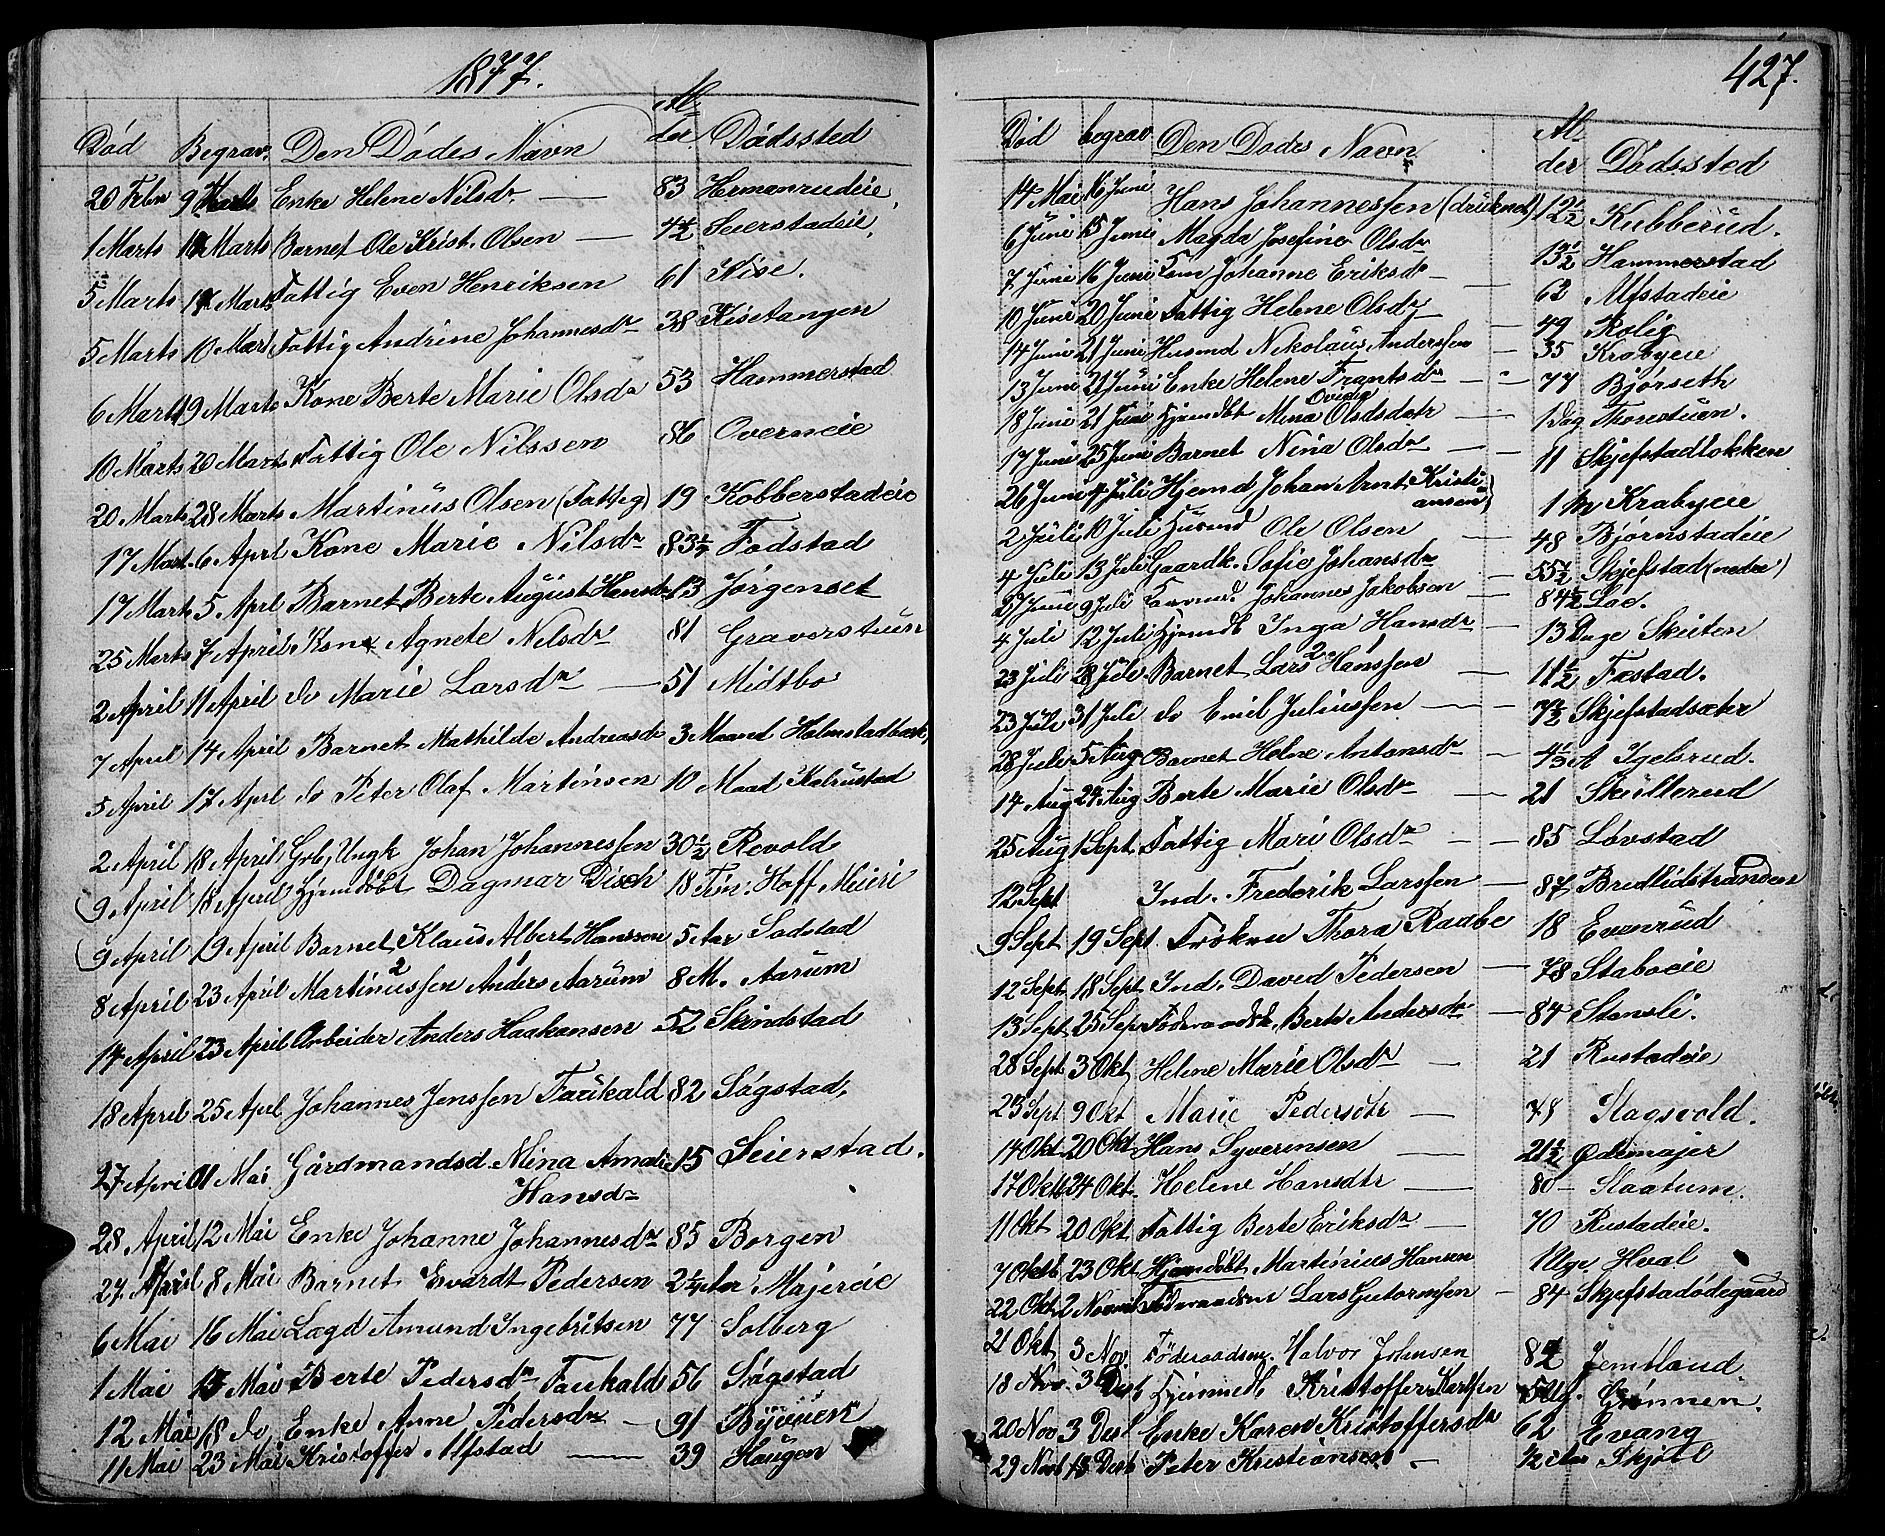 1877.
Död Begrav. Den Dödes Navn Al-der Dödssted
20 Febr 9 Marts Enke Helene Nilsdr. 83 Hermanrudeie
1 Marts Marts Barnet Ole Krist. Olsen 4½ Seierstadeie
5 Marts 17 Marts Fattig Even Henriksen 61 Kise.
5 Marts 10 Marts Fattig Andrine Johannesdr 38 Kisetangen
6 Marts 19 Marts Kone Berte Marie Olsdr 53 Hammerstad
10 Marts 20 Marts Fattig Ole Nilssen 86 Overneie
20 Marts 28 Marts Martinus Olsen (Fattig) 19 Kobberstadeie
17 Mart. 6 Aprl Kone Marie Nilsdr 83½ Fodstad
17 Marts 5 Aprl Barnet Berte August Hansdr 13 Jörgenset
25 Marts 7 April Kone Agnete Nilsdr 81 Graverstuen
2 April 11 April do Marie Larsdr 51 Midtbo
7 April 14 April Barnet Mathilde Andreasdr 3 Maaned Holmstadbæk
5 April 17 Aprl do Peter Olaf Martinsen 10 Maad Kolrustad
2 April 18 April Grb. Ungk Johan Johannessen 30½ Revold
9 April 18 April Hjemdöbt Dagmar Disch 18 Tim. Hoff Meieri
9 April 19 April Barnet Klaus Albert Hanssen 5 Aar Sodstad
8 April 23 April Martinussen 2 Anders 1 Aarum 8 M. Aarum
14 April 23 April Arbeider Anders Haakansen 52 Skindstad
18 April 25 April Johannes Jenssen Faukald 82 Sögstad
27 April 11 Mai Gårdmandsd. Mina Amalie 15 Seierstad.
Hansdr
28 April 12 Mai Enke Johanne Johannesdr 85 Borgen
27 April 8 Mai Barnet Evardt Pedersen 2¼ Aar Majeröie
6 Mai 16 Mai Lægd Amund Ingebritsen 77 Solberg
1 Mai 15 Mai Berte Pedersdr Faukald 56 Sögstad
12 Mai 18 do Enke Anne Pedersdr 91 Byeveien
11 Mai 23 Mai Kristoffer Alfstad 39 Haugen
427.
Död begrav Den Dödes Navn Al-der Dödssted
14 Mai 16 Juni Hans Johannessen (druknet) 12½ Kubberud.
6 Juni 15 Juni Magda Josefine Olsdr 13½ Hammerstad
7 Juni 16 Juni Johanne Eriksdr 62 Alfstadeie
10 Juni 20 Juni Fattig Helene Olsdr 49 Rolig
14 Juni 21 Juni Husmd Nikolaus Anderssen 35 Krabyeie
13 Juni 21 Juni Enke Helene Frantsdr 77 Björseth
18 Juni 21 Juni Hjemdöbt Mina Ovidia Olsdsdatr 1 Dag Thorstuen.
17 Juni 25 Juni Barnet Nina Olsdr 11 Skjefstadlökken
26 Juni 4 Juli Hjemd Johan Arnt Kristi-
ansen 1 M Krabyeie
2 Juli 10 Juli Husmd Ole Olsen 48 Björnstadeie
4 Juli 13 Juli Gaardk. Sofie Johansdr 55½ Skjefstad (nedre)
27 Juni 9 Juli Johannes Jakobsen 84½ Loe.
4 Juli 12 Juli Hjemdb Inga Hansdr 13 Dage Skuten
23 Juli 28 Juli Barnet Lars 2 Hanssen 1 11½ Fæstad.
23 Juli 31 Juli do Emil Juliussen 7½ Skjefstadsætr
28 Juli 5 Aug Barnet Helene Antonsdr 4⅓ A Igelsrud.
14 Aug 24 Aug Berte Marie Olsdr 21 Skullerud
25 Aug 1 Sept Fattig Mari Olsdr 85 Lövstad
12 Sept Ind. Frederik Larssen 87 Bredlidstranden
9 Sept 19 Sept Fröken Thora Raabe 18 Evenrud
12 Sept 18 Sept. Ind. David Pedersen 78 Staboeie
13 Sept 25 Sep Föderaadsk. Berte Andersdr 84 Stensli.
28 Sept 3 Okt Helene Marie Olsdr 21 Rustadeie
23 Sept 9 Okt Marie Pedersdtr 78 Flagsvold.
14 Okt 20 Okt Hans Syverinsen 21½ Ödemajer
17 Oktb 24 Okt. Helene Hansdtr 80 Slaatum.
11 Okt 20 Okt Fattig Berte Eriksdr 70 Rustadeie.
7 Oktb 23 Okt Hjemdöbt Martinius Hansen 1 Uge Hval
22 Okt 2 Novmb Föderaadsm Lars Gutormsen 84 Skjefstadödegaard
21 Okt 3 Nov. Föderaadsm. Halvor Johnsen 84½ Jemtland
18 Nov. 3 Desb Hjemmedb Kristoffer Karlsen 5 Ug. Grönnen.
20 Nov 3 Desb Enke Karen Kristoffersdr 62 Evang
29 Novb 18 Desb Peter Kristiansen ½ Aar Skjöll